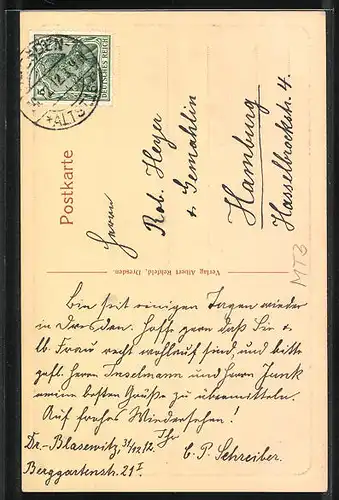 DEUTSCHES REICH
5
DRESDEN-
*ALTST.
Postkarte
Herrn
Rob. Heyer
& Gemahlin
Hamburg
Hasselbrockstr. 4.
Verlag Albert Rehfeld, Dresden.
MTB
Bin seit einigen Tagen wieder
in Dresden. Hoffe gern daß Sie &
lb. Frau recht wohlauf sind, und bitte
gefl. Herrn Inselmann und Herrn Junk
meine besten Grüße zu übermitteln.
Auf frohes Wiedersehen!
Ihr
Dr.-Blasewitz, 31/12 12.
C. P. Schreiber.
Berggartenstr. 21 I